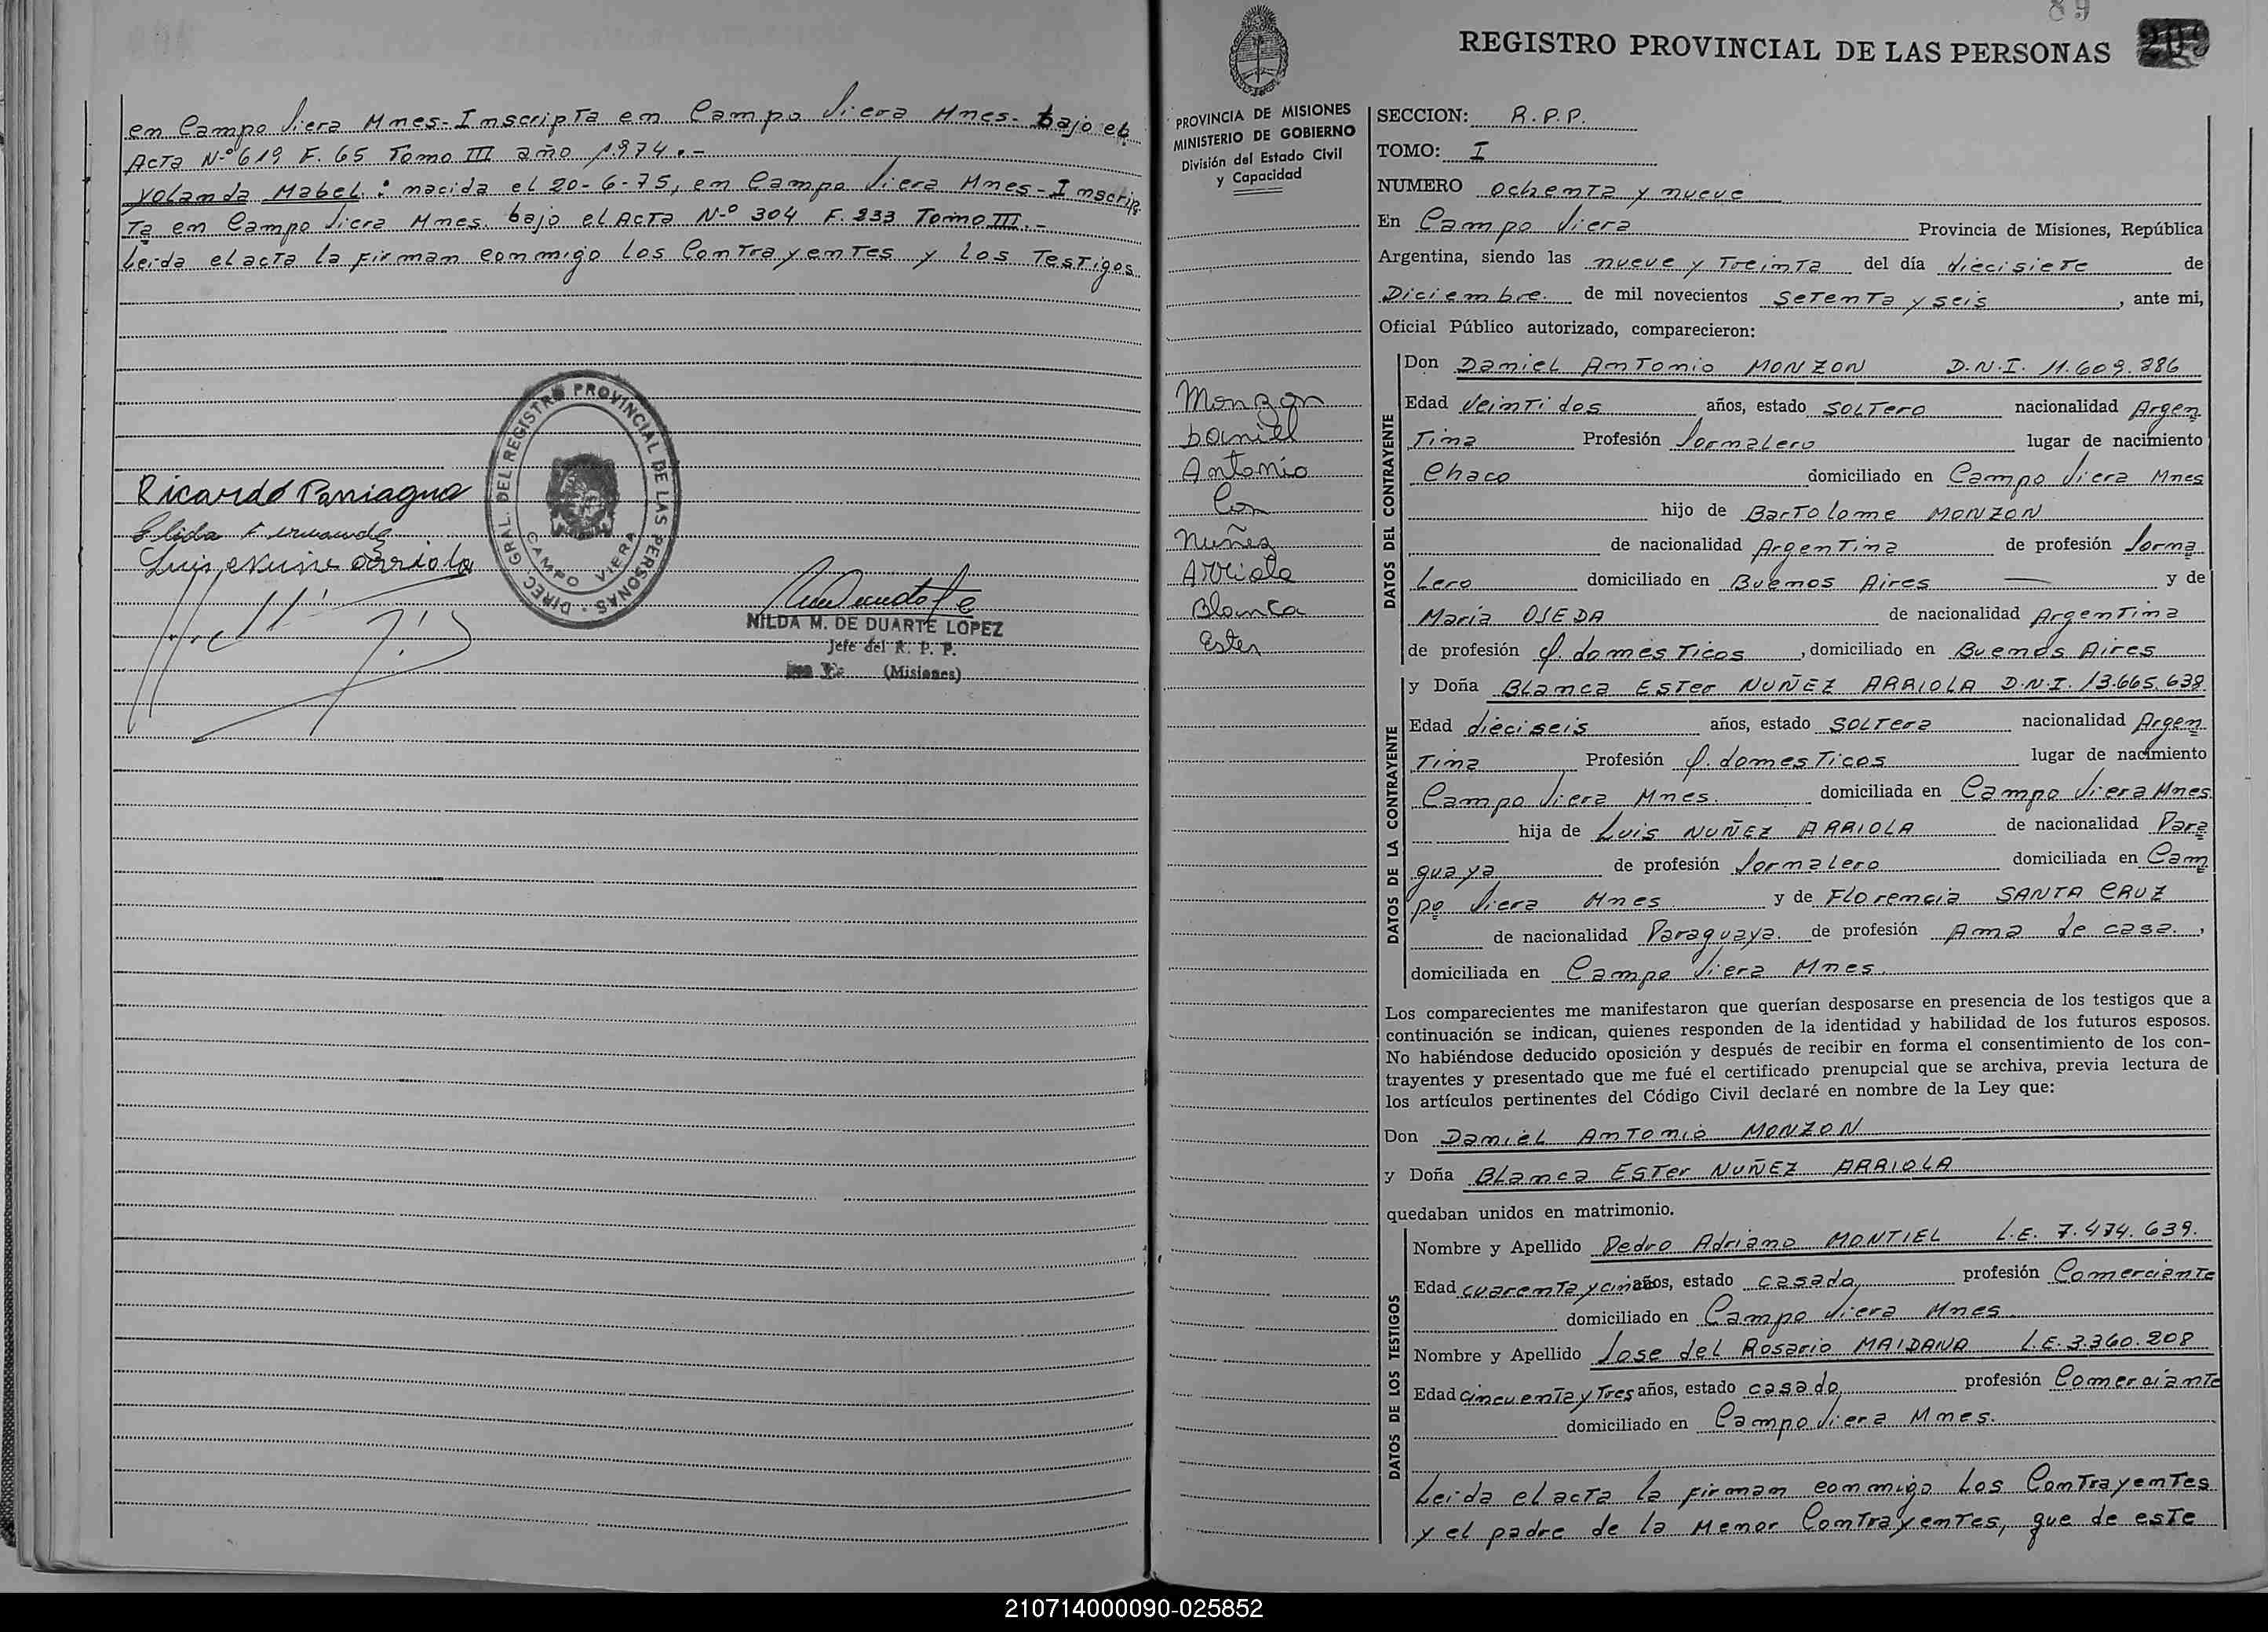 en Campo Viera Mnes-Inscripta en Campo Viera Mnes- bajo el
Acta N-º 619 F. 65 Tomo III año 1.974.-
Yolanda Mabel: nacida el 20-6-75, en Campo Viera Mnes-Inscrip
Ta en Campo Viera Mnes. bajo el Acta N-º 304 F. 233 Tomo III.-
Leida el acta la Firman conmigo los Contrayentes y los Testigos
Ricardo Paniagua
Elida Fernandez
Luis Nuñe arriola
DIREC. GRAL. DEL REGISTRO PROVINCIAL DE LAS PERSONAS
CAMPO VIERA
NILDA M. DE DUARTE LOPEZ
Jefe del R. P. P.
(Misiones)
89
209
REGISTRO PROVINCIAL DE LAS PERSONAS
PROVINCIA DE MISIONES
MINISTERIO DE GOBIERNO
División del Estado Civil
y Capacidad
Monzon
Daniel
Antonio
Con
Nuñez
Arriola
Blanca
Ester
SECCION: R.P.P.
TOMO: I
NUMERO ochenta y nueve
En Campo Viera Provincia de Misiones, República
Argentina, siendo las nueve y Treinta del día diecisiete de
Diciembre. de mil novecientos Setenta y seis, ante mi,
Oficial Público autorizado, comparecieron:
DATOS DEL CONTRAYENTE
Don Daniel Antonio MONZON D.N.I. 11.609.286
Edad Veintidos años, estado SOLTERO nacionalidad Argen
Tina Profesión Jornalero lugar de nacimiento
Chaco domiciliado en Campo Viera Mnes
hijo de Bartolome MONZON
de nacionalidad Argentina de profesión Jorna
Lero domiciliado en Buenos Aires y de
Maria OJEDA de nacionalidad Argentina
de profesión Q. domesticos, domiciliado en Buenos Aires
DATOS DE LA CONTRAYENTE
y Doña Blanca Ester NUÑEZ ARRIOLA D.N.I. 13.665.639
Edad dieciseis años, estado Soltera nacionalidad Argen
Tina Profesión Q. domesticos lugar de nacimiento
Campo Viera Mnes. domiciliada en Campo Viera Mnes
hija de Luis NUÑEZ ARRIOLA de nacionalidad Para
guaya de profesión Jornalero domiciliada en Cam
po Viera Mnes y de Florencia SANTA CRUZ
de nacionalidad Paraguaya. de profesión Ama de casa.,
domiciliada en Campo Viera Mnes.
Los comparecientes me manifestaron que querían desposarse en presencia de los testigos que a
continuación se indican, quienes responden de la identidad y habilidad de los futuros esposos.
No habiéndose deducido oposición y después de recibir en forma el consentimiento de los con-
trayentes y presentado que me fué el certificado prenupcial que se archiva, previa lectura de
los artículos pertinentes del Código Civil declaré en nombre de la Ley que:
Don Daniel Antonio MONZON
y Doña Blanca Ester NUÑEZ ARRIOLA
quedaban unidos en matrimonio.
DATOS DE LOS TESTIGOS
Nombre y Apellido Pedro Adriano MONTIEL L.E. 7.474.639.
Edad cuarenta y cinco años, estado casado profesión Comerciante
domiciliado en Campo Viera Mnes
Nombre y Apellido Jose del Rosario MAIDANA L.E. 3.360.208
Edad Cincuenta y Tres años, estado casado profesión Comerciante
domiciliado en Campo Viera Mnes.
Leida el acta la Firman conmigo Los Contrayentes
y el padre de la Menor Contrayentes, que de este
210714000090-025852